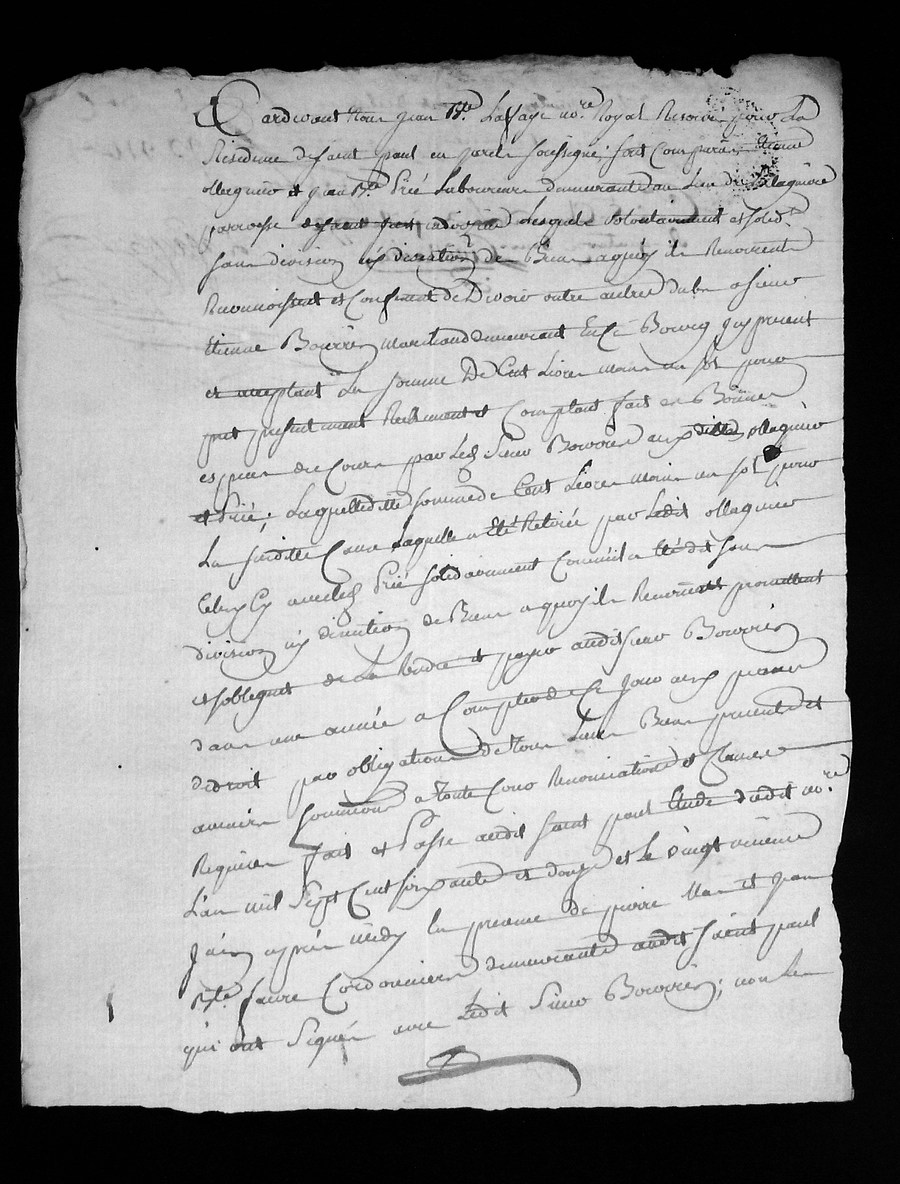 Pardevant Nous Jean Bte. Lafaye nore. Royal Reservé pour La
Residence de saint paul en jarete soussigné; sont comparus
ollagnier et jean Bte. Prié Laboureurs demeurants au Lieu de
parroisse de saint just Lesquels volontairement et solidt.
sans division ny discution de Biens a quoy ils Renoncent
Reconnoissent et Confessent De Devoir outre autre dub a sieur
Etienne Bouvier marchand demeurant En Ce Bourg icy present
et acceptant La somme De Cent Livres moins un sol pour
pret presentement Reellement et Comptant fait en Bonnes
especes de Cours par Led. Sieur Bouvier aux dits ollagnier
et Prié; Laquelle ditte somme de Cent Livres moins un sol pour
La susditte Cause Laquelle a Eté Retirée par Ledit ollagnier
Celuy Cy avec led. Prié solidairement Comme il a été dit sans
division ny discution de Biens a quoy ils Renoncent promettent
et sobligent de La Rendre et payer audit sieur Bouvier
dans une année a Compter de Ce Jour aux peines
de droit par obligation de Tous Leurs Biens presents et
avenirs soumissions a Toute Cours Renonciations et Clauses
Requises fait et Passé audit saint paul Etude dudit nore.
L'an mil sept Cent soixante et douze et Le vingt
après midy En presence de pierre et Jean
Bte. faure Cordonniers demeurants audit saint paul
qui ont signés avec Ledit Sieur Bouvier; non Les